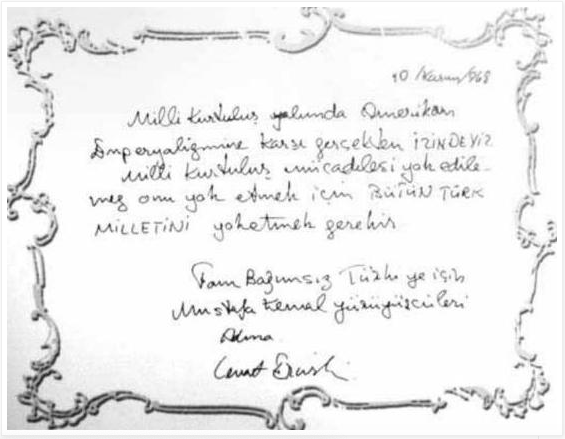 10 Kasım 968
Milli Kurtuluş yolunda Amerikan
Emperyalizmine karşı gerçekten İZİNDEYİZ
Milli Kurtuluş mücadelesi yok edile-
mez onu yok etmek için BÜTÜN TÜRK
MİLLETİNİ yoketmek gerekir.
Tam Bağımsız Türkiye için
Mustafa Kemal yürüyüşcüleri
Adına